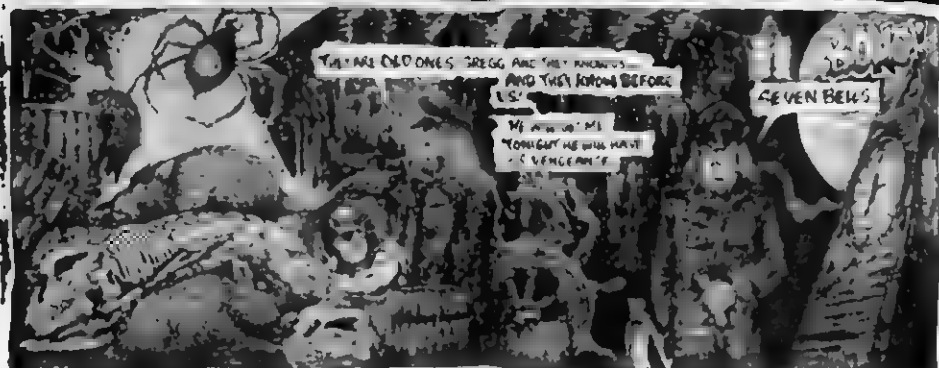 THEY ARE OLD ONES GREGG AND THEY KNOW US
AND THEY KNOW BEFORE
US
ME
TONIGHT HE WILL HAVE
VENGEANCE
SEVEN BELLS